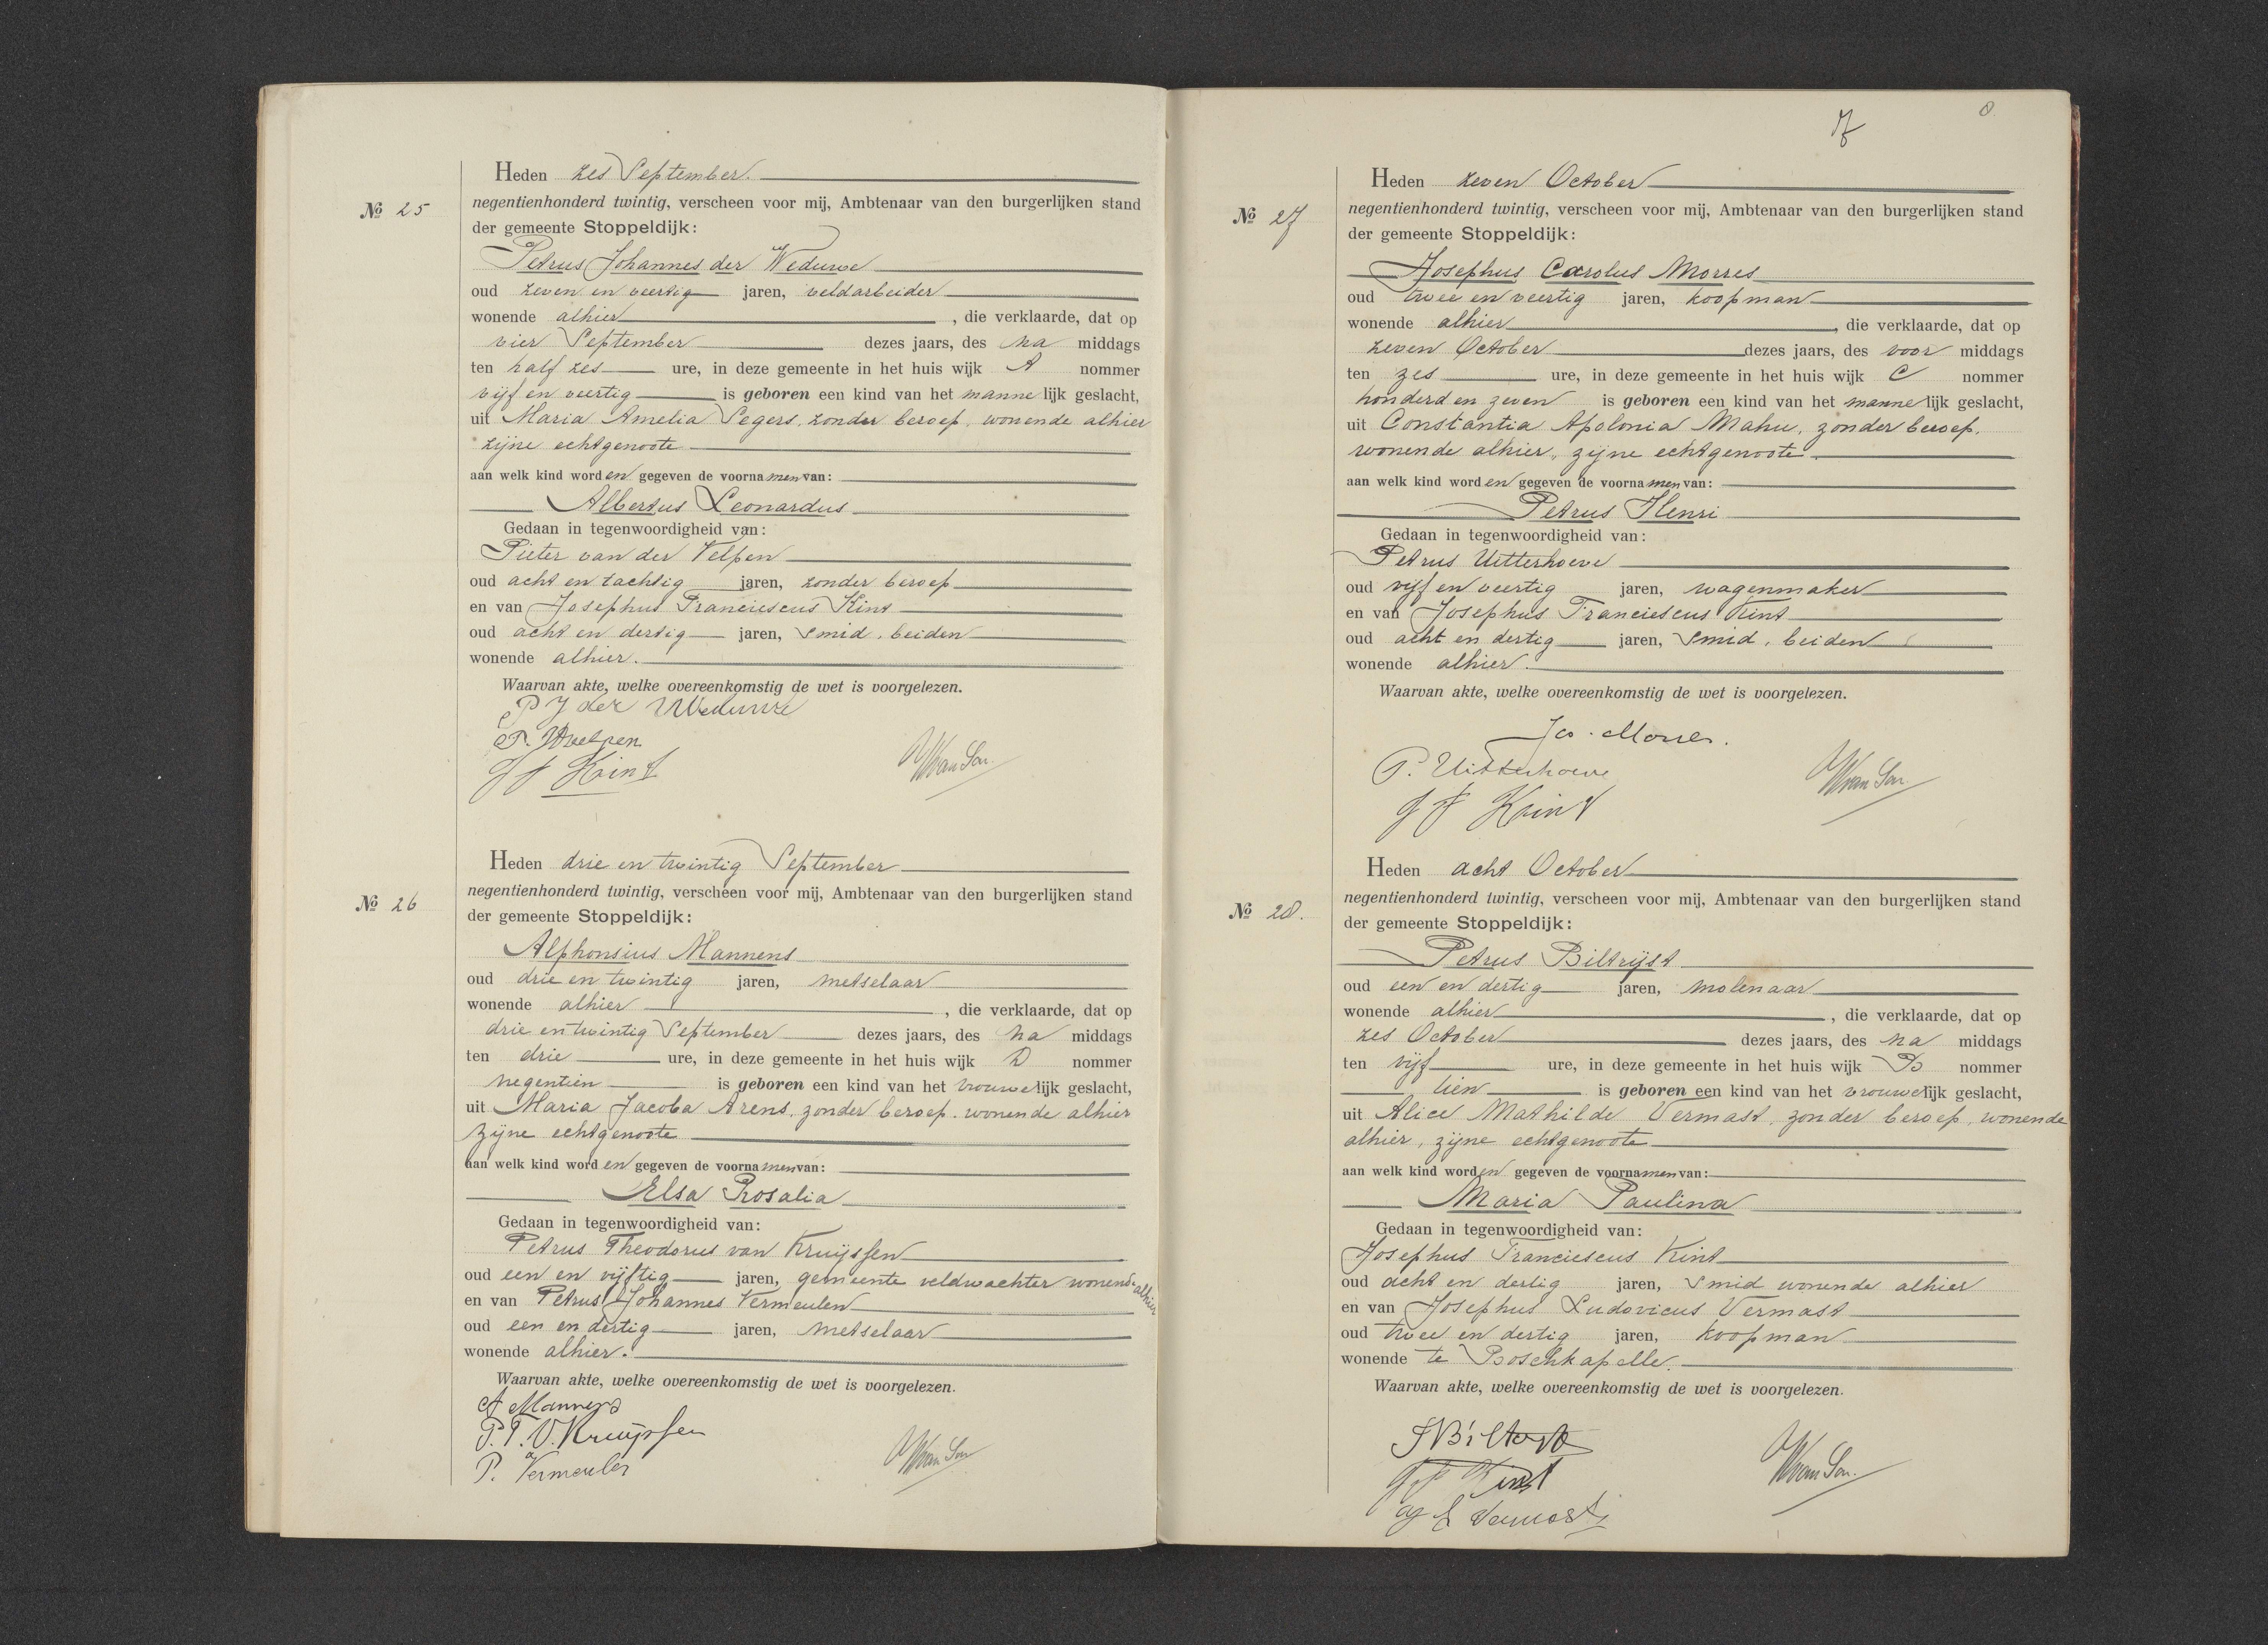 Heden zes September.
Nº 25
negentienhonderd twintig, verscheen voor mij, Ambtenaar van den burgerlijken stand
der gemeente Stoppeldijk:
Petrus Johannes der Weduwe
oud zeven en veertig jaren, veldarbeider
wonende alhier, die verklaarde, dat op
vier September dezes jaars, des na middags
ten half zes ure, in deze gemeente in het huis wijk A nommer
vijf en veertig is geboren een kind van het mannelijk geslacht,
uit Maria Amelia Segers, zonder beroep, wonende alhier
zijne echtgenoote
aan welk kind worden gegeven de voornamen van:
Albertus Leonardus
Gedaan in tegenwoordigheid van:
Pieter van der Velpen
oud acht en tachtig jaren, zonder beroep
en van Josephus Franciescus Kint
oud acht en dertig jaren, smid, beiden
wonende alhier.
Waarvan akte, welke overeenkomstig de wet is voorgelezen.
P J der Weduwe
J F Kint
van Son
Heden drie en twintig September
Nº 26
negentienhonderd twintig, verscheen voor mij, Ambtenaar van den burgerlijken stand
der gemeente Stoppeldijk:
Alphonsius Mannens
oud drie en twintig jaren, metselaar
wonende alhier, die verklaarde, dat op
drie en twintig September dezes jaars, des na middags
ten drie ure, in deze gemeente in het huis wijk D nommer
negentien is geboren een kind van het vrouwelijk geslacht,
uit Maria Jacoba Arens, zonder beroep, wonende alhier
zijne echtgenoote
aan welk kind worden gegeven de voornamen van:
Elsa Rosalia
Gedaan in tegenwoordigheid van:
Petrus Theodorus van Kruijssen
oud een en vijftig jaren, gemeente veldwachter wonende alhier
en van Petrus Johannes Vermeulen
oud een en dertig jaren, metselaar
wonende alhier.
Waarvan akte, welke overeenkomstig de wet is voorgelezen.
A Mannens
P. T. V. Kruijssen
P. Vermeulen
van Son
7
8
Heden zeven October
Nº 27
negentienhonderd twintig, verscheen voor mij, Ambtenaar van den burgerlijken stand
der gemeente Stoppeldijk:
Josephus Carolus Morres
oud twee en veertig jaren, koopman
wonende alhier, die verklaarde, dat op
zeven October dezes jaars, des voor middags
ten zes ure, in deze gemeente in het huis wijk C nommer
honderd en zeven is geboren een kind van het mannelijk geslacht,
uit Constantia Apolonia Mahu, zonder beroep,
wonende alhier, zijne echtgenoote.
aan welk kind worden gegeven de voornamen van:
Petrus Henri
Gedaan in tegenwoordigheid van:
Petrus Uitterhoeve
oud vijf en veertig jaren, wagenmaker
en van Josephus Franciescus Kint
oud acht en dertig jaren, smid, beiden
wonende alhier.
Waarvan akte, welke overeenkomstig de wet is voorgelezen.
Jos. Morres.
P. Uitterhoeve
J F Kint
van Son
Heden acht October
Nº 28.
negentienhonderd twintig, verscheen voor mij, Ambtenaar van den burgerlijken stand
der gemeente Stoppeldijk:
Petrus Biltrijst
oud een en dertig jaren, molenaar
wonende alhier, die verklaarde, dat op
zes October dezes jaars, des na middags
ten vijf ure, in deze gemeente in het huis wijk B nommer
tien is geboren een kind van het vrouwelijk geslacht,
uit Alice Mathilde Vermast, zonder beroep, wonende
alhier, zijne echtgenoote
aan welk kind worden gegeven de voornamen van:
Maria Paulina
Gedaan in tegenwoordigheid van:
Josephus Franciescus Kint
oud acht en dertig jaren, smid wonende alhier
en van Josephus Ludovicus Vermast
oud twee en dertig jaren, koopman
wonende te Boschkapelle.
Waarvan akte, welke overeenkomstig de wet is voorgelezen.
J F Kint
Vermast
van Son.